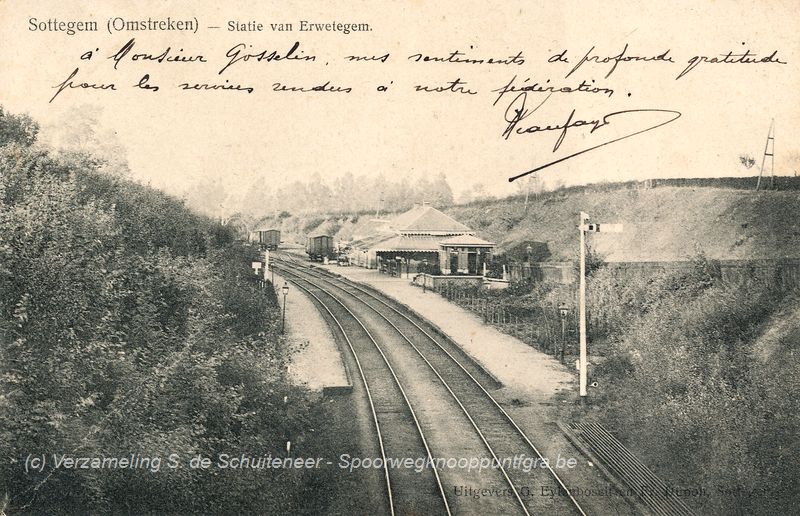 Sottegem (Omstreken) — Statie van Erwetegem.
à Monsieur Gosselin, mes sentiments de profonde gratitude
pour les services rendus à notre fédération.
(c) Verzameling S. de Schuiteneer - Spoorwegknooppuntfgra.be
Uitgevers G.